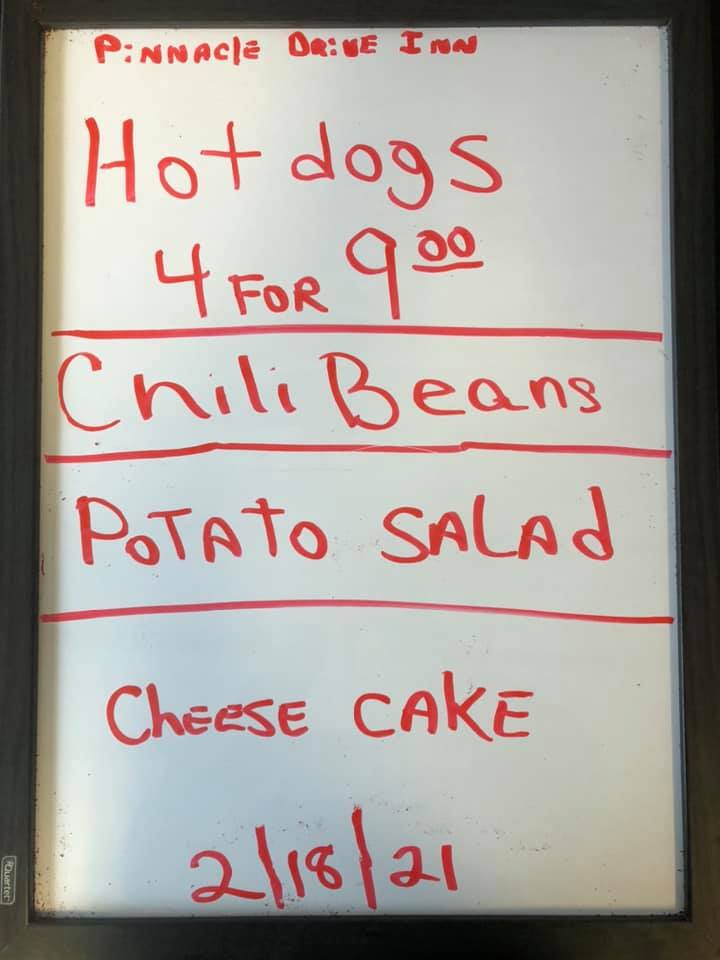 PiNNACLE DRiVE INN
Hot dogs
4 FOR 9.00
Chili Beans
POTATO SALAd
ChEESE CAKE
2/18/21
Quartet